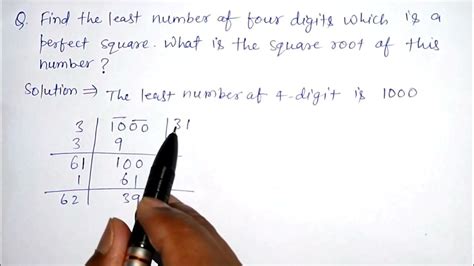 Q. Find the least number of four digits which is a
perfect square. What is the square root of this
number?
Solution ⇒ The least number of 4-digit is 1000
3 | 1000 | 31
3 | 9
61 | 100
1 | 61
62 | 39